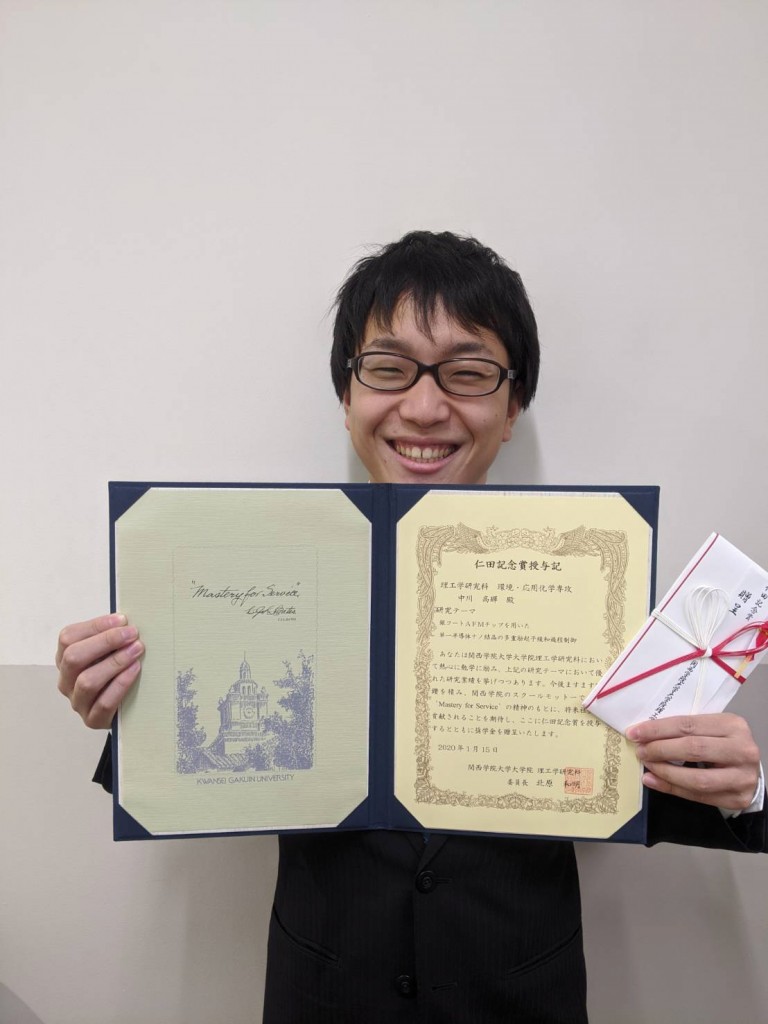 "Mastery for Service"
KWANSEI GAKUIN UNIVERSITY
仁田記念賞授与記
理工学研究科 環境・応用化学専攻
中川 高輝 殿
研究テーマ
銀コートAFMチップを用いた
単一半導体ナノ結晶の多重励起子緩和過程制御
あなたは関西学院大学大学院理工学研究科におい
て熱心に勉学に励み、上記の研究テーマにおいて優
れた研究業績を挙げつつあります。今後ますます
躍を積み、関西学院のスクールモットーで
"Mastery for Service"の精神のもとに、将来社
貢献されることを期待し、ここに仁田記念賞を授与
するとともに奨学金を贈呈いたします。
2020年1月15日
関西学院大学大学院 理工学研究科
委員長 北原 和明
田記念賞
贈呈
関西学院大学大学院理工